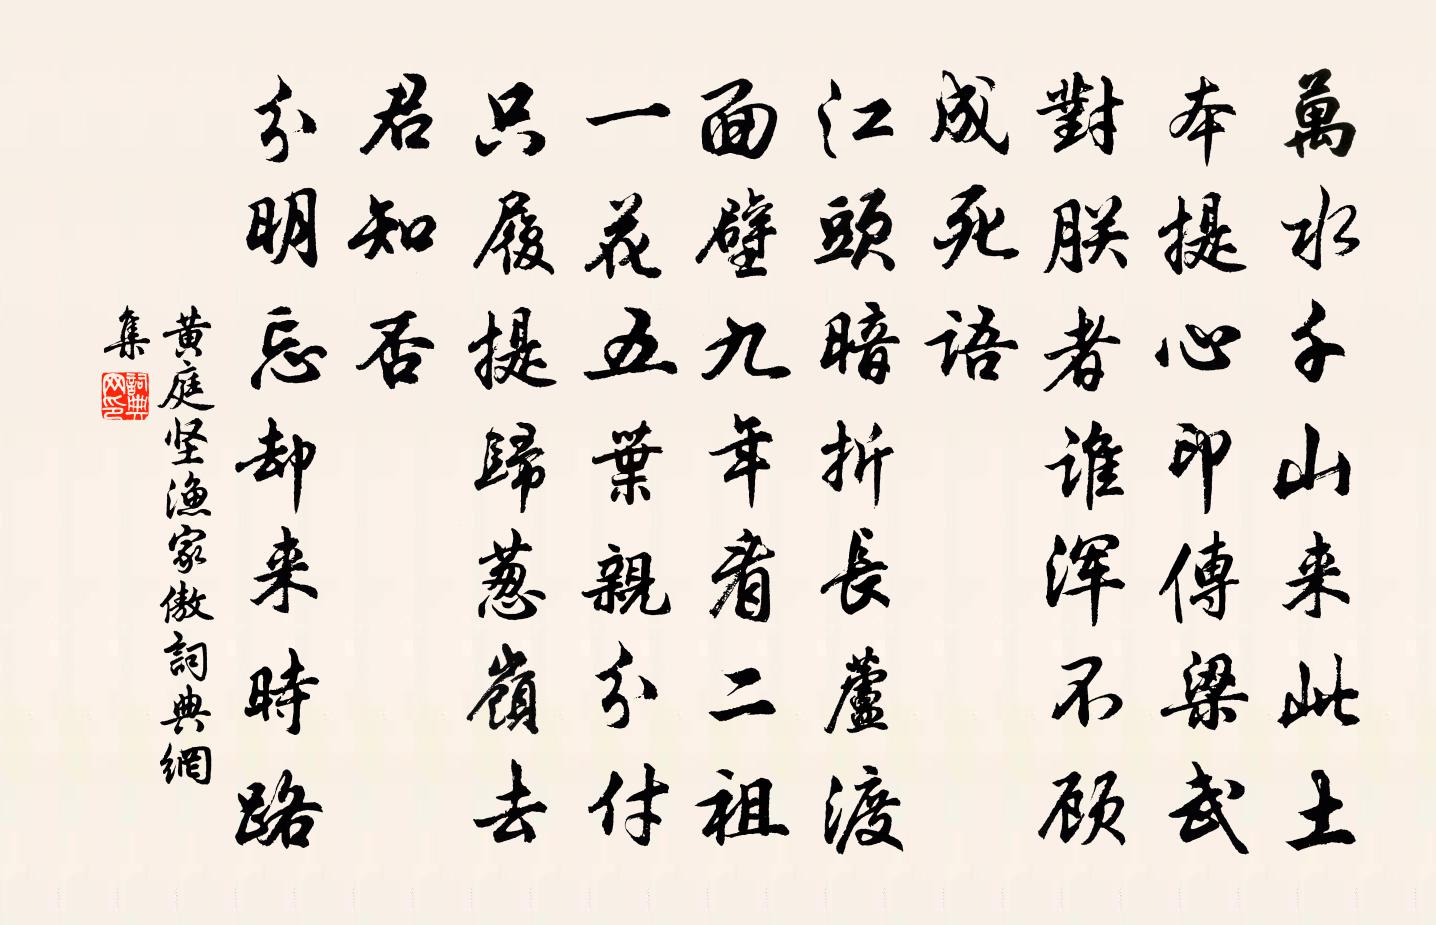 萬水千山来此土
本提心印傳梁武
對朕者誰浑不顾
成死語
江頭暗折長蘆渡
面壁九年看二祖
一花五葉親分付
只履提歸葱嶺去
君知否
分明忘却来時路
黄庭坚漁家傲詞典網
集
詞典
网印